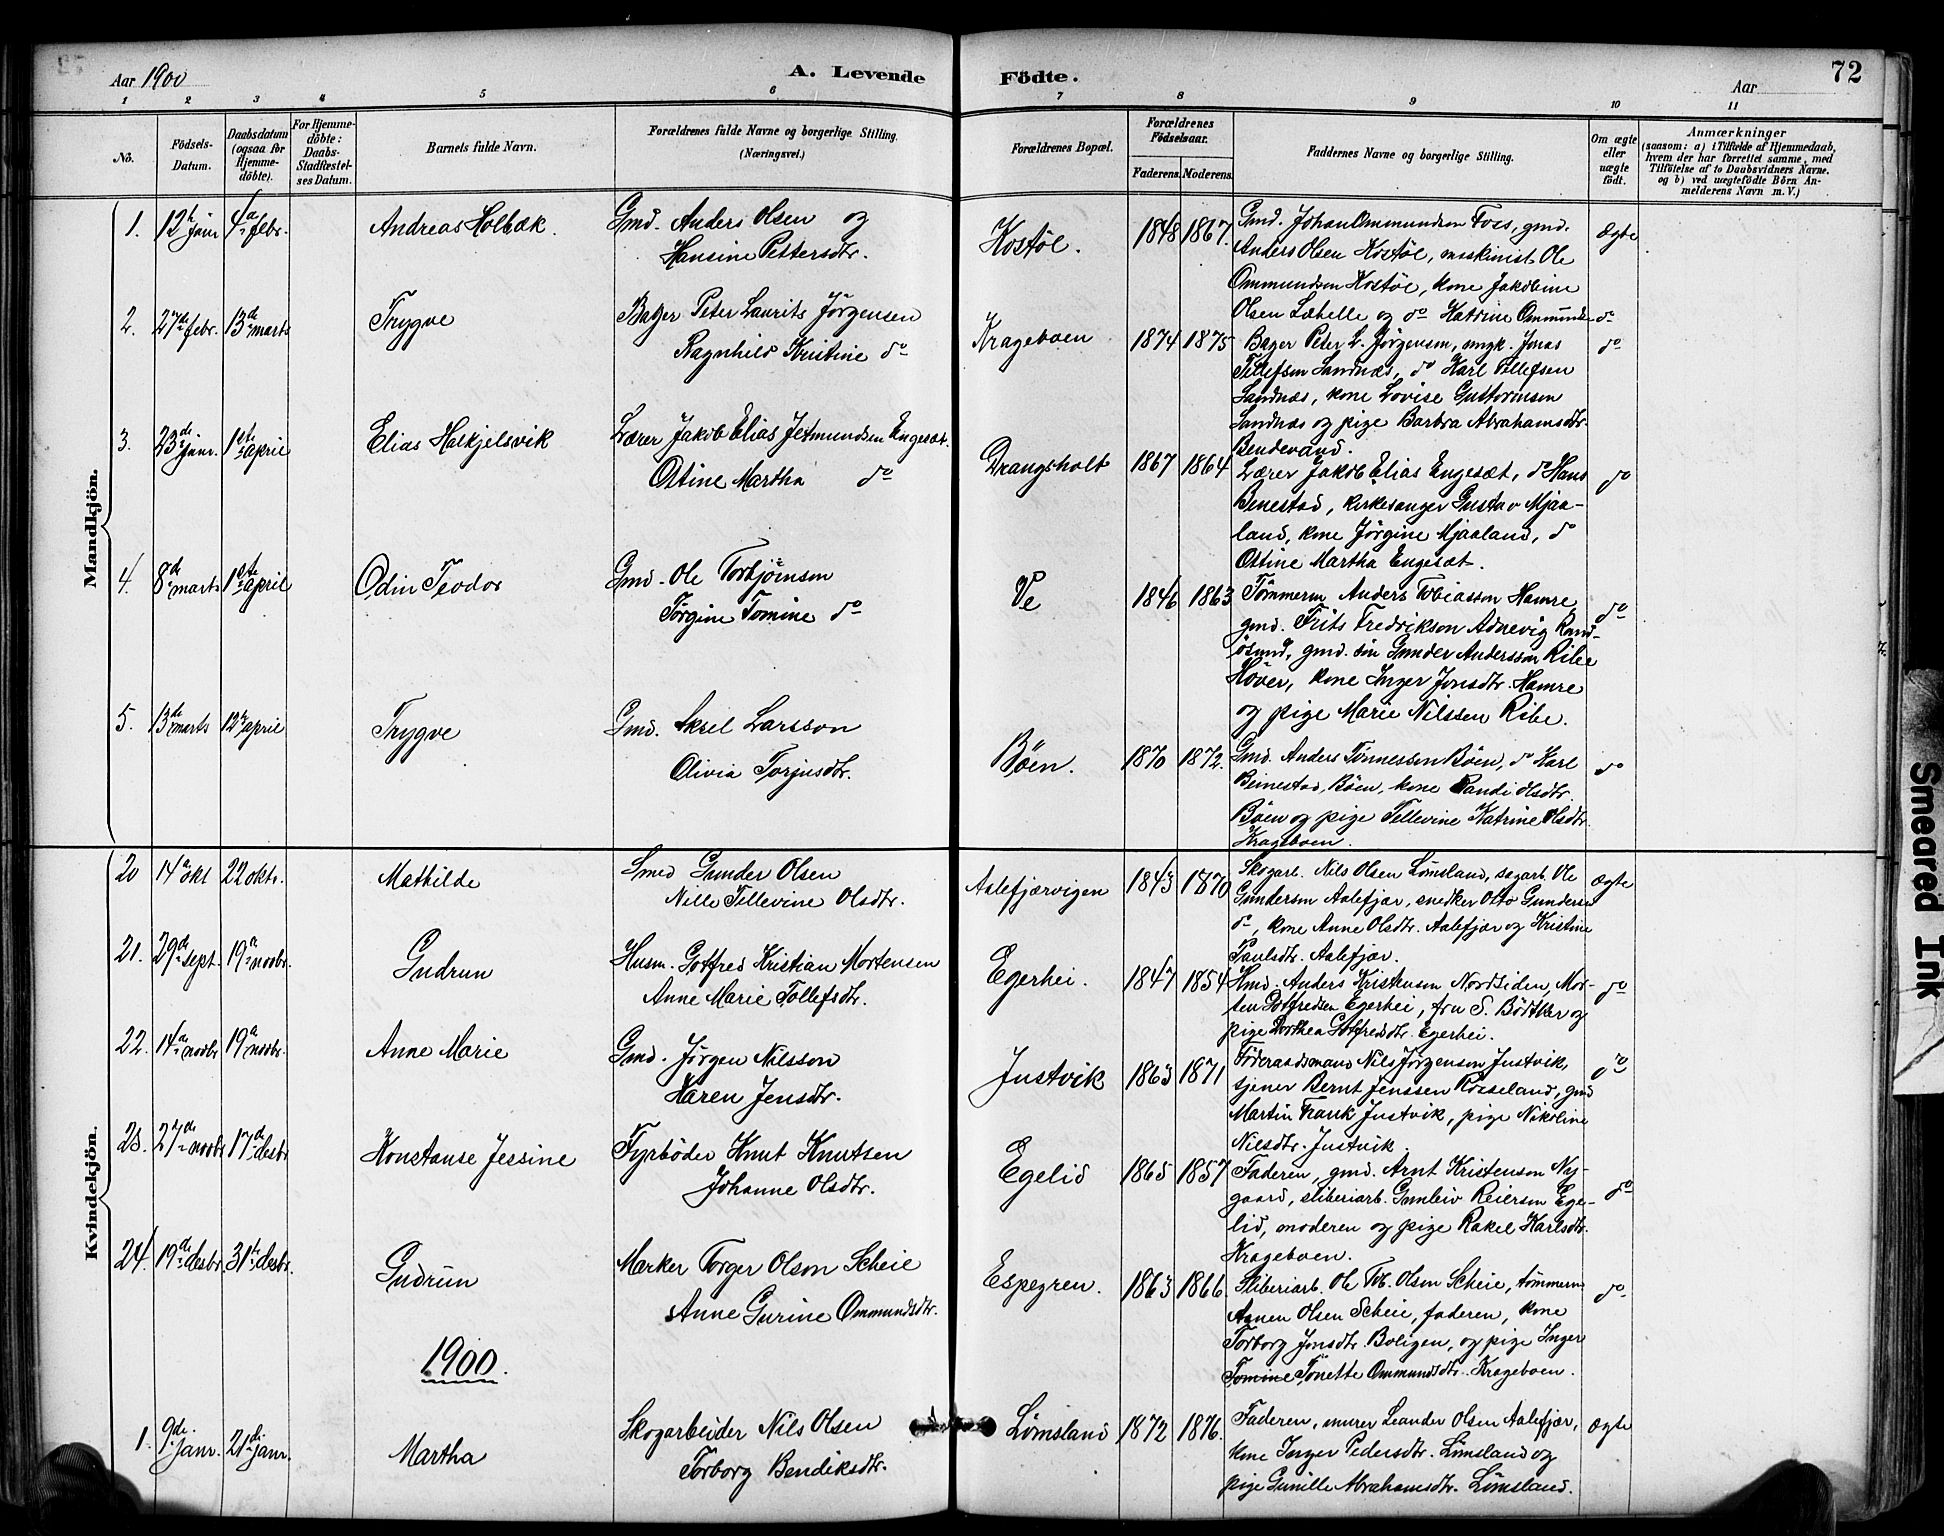 Aar 1900
A. Levende
Födte.
Aar
72
1 2 3 4 5 6 7 8 9 10 11
No.
Födsels-
Datum.
Daabsdatum
(ogsaa for
Hjemme-
döbte).
For Hjemme-
döbte:
Daabs-
Stadfæstel-
ses Datum.
Barnets fulde Navn.
Forældrenes fulde Navne og borgerlige Stilling.
(Næringsvei.)
Forældrenes Bopæl.
Forældrenes
Födselsaar.
Faderens. Moderens.
Faddernes Navne og borgerlige Stilling.
Om ægte
eller
uægte
födt.
Anmærkninger
(saasom: a) i Tilfælde af Hjemmedaab,
hvem der har forrettet samme, med
Tilföielse af to Daabsvidners Navne.
og b) ved uægtefödte Börn An-
melderens Navn m. V.)
Mandkjön.
1. 12te janr 4de febr. Andreas Holbæk. Gmd. Anders Olsen og
Hansine Pettersdtr.
Kostöl. 1848 1867.
Gmd. Johan Ommundsen Foss, gmd.
Anders Olsen Kostöl, maskinist Ole
Ommundsen Kostöl, kone Jakobine
Olsen Læhelle og do Katrine Ommundsen
Ægte
do
2. 27de febr. 13de marts Trygve Bager Peter Laurits Jörgensen
Ragnhild Kristine do
Krageboen 1874 1875
Bager Peter L. Jörgensen, ungk. Jonas
Tellefsen Sandnæs, do Karl Tellefsen
Sandnæs, kone Lovise Guttormsen
Sandnæs og pige Barbra Abrahamsdtr.
Bendevand.
do
3. 23de janr. 1ste april Elias Halkjelsvik Lærer Jakob Elias Jetmundsen Engesæt.
Ostine Martha do
Drangsholt 1867 1864
Lærer Jakob Elias Engesæt, do Hans
Benestad, kirkesanger Gustav Mjaa-
land, kone Jörgine Mjaaland, do
Ostine Martha Engesæt.
do
4. 8de marts 1ste april Odin Teodor Gmd. Ole Torbjörnsen
Jörgine Tomine do
Ve 1846 1863
Tömmerm Anders Tobiasson Hamre,
gmd. Frits Fredrikson Adnevig Rand-
ösund, gmd. sön Gunder Andersson Ribe
Höver, kone Inger Jonsdtr. Hamre
og pige Marie Nilssen Ribe.
do
5. 13de marts 12te april Trygve Gmd. Aksel Larsson
Olivia Torjusdtr.
Böen. 1870 1872.
Gmd. Anders Tönnessen Böen, do Karl
Beinestad, Böen, kone Randi Olsdtr.
Böen og pige Tellevine Katrine Olsdtr.
Krageboen.
do
Kvindekjön.
20 14de okt 22 oktr. Mathilde Smed Gunder Olsen
Nille Tellevine Olsdtr.
Aalefjærvigen 1843 1870
Skogarb. Nils Olsen Lömsland, sagarb. Ole
Gundersen Aalefjær, snedker Otto Gundersen
do, kone Anne Olsdtr. Aalefjær og Kristine
Paulsdtr. Aalefjær.
Ægte
21. 29de sept. 19de novbr. Gudrun Husm. Gotfred Kristian Mortensen
Anne Marie Tollefsdtr.
Egerhei. 1847 1854
Hmd. Anders Kristensen Nordsiden, Mor-
ten Gotfredsen Egerhei, fru S. Bödtker og
pige Dorthea Gotfredsdtr. Egerhei.
do
22. 14de novbr 19de novbr. Anne Marie Gmd. Jörgen Nilsson
Karen Jensdtr.
Justvik 1863 1871
Föderaadsmand Nils Jörgensen Justvik,
tjener Bernt Jenssen Rosseland, gmd
Martin Frank Justvik, pige Nikoline
Nilsdtr. Justvik.
do
23. 27de novbr 17de desbr Konstanse Jessine Fyrböder Knut Knutsen
Johanne Olsdtr.
Egelid 1865 1857
Faderen, gmd. Arnt Kristenson Ny-
gaard, sliberiarb. Gunleiv Reiersen Ege-
lid, moderen og pige Rakel Karlsdtr.
Krageboen.
do
24. 19de desbr 31te desbr. Gudrun Mærker Torger Olson Scheie
Anne Gurine Ommundsdtr.
Espegren. 1863 1866.
Sliberiarb. Ole Tob. Olsen Scheie, tömmerm
Aanen Olsen Scheie, faderen, kone
Torborg Jonsdtr. Boligen, og pige Inger
Tomine Tonette Ommundsdtr. Krageboen.
do
1900.
1. 9de janr. 21de janr. Martha Skogarbeider Nils Olsen
Torborg Bendiksdtr.
Lömsland 1872 1876.
Faderen, murer Leander Olsen Aalefjær,
kone Inger Pedersdtr. Lömsland og
pige Gunille Abrahamsdtr. Lömsland.
Ægte
Smeared Ink